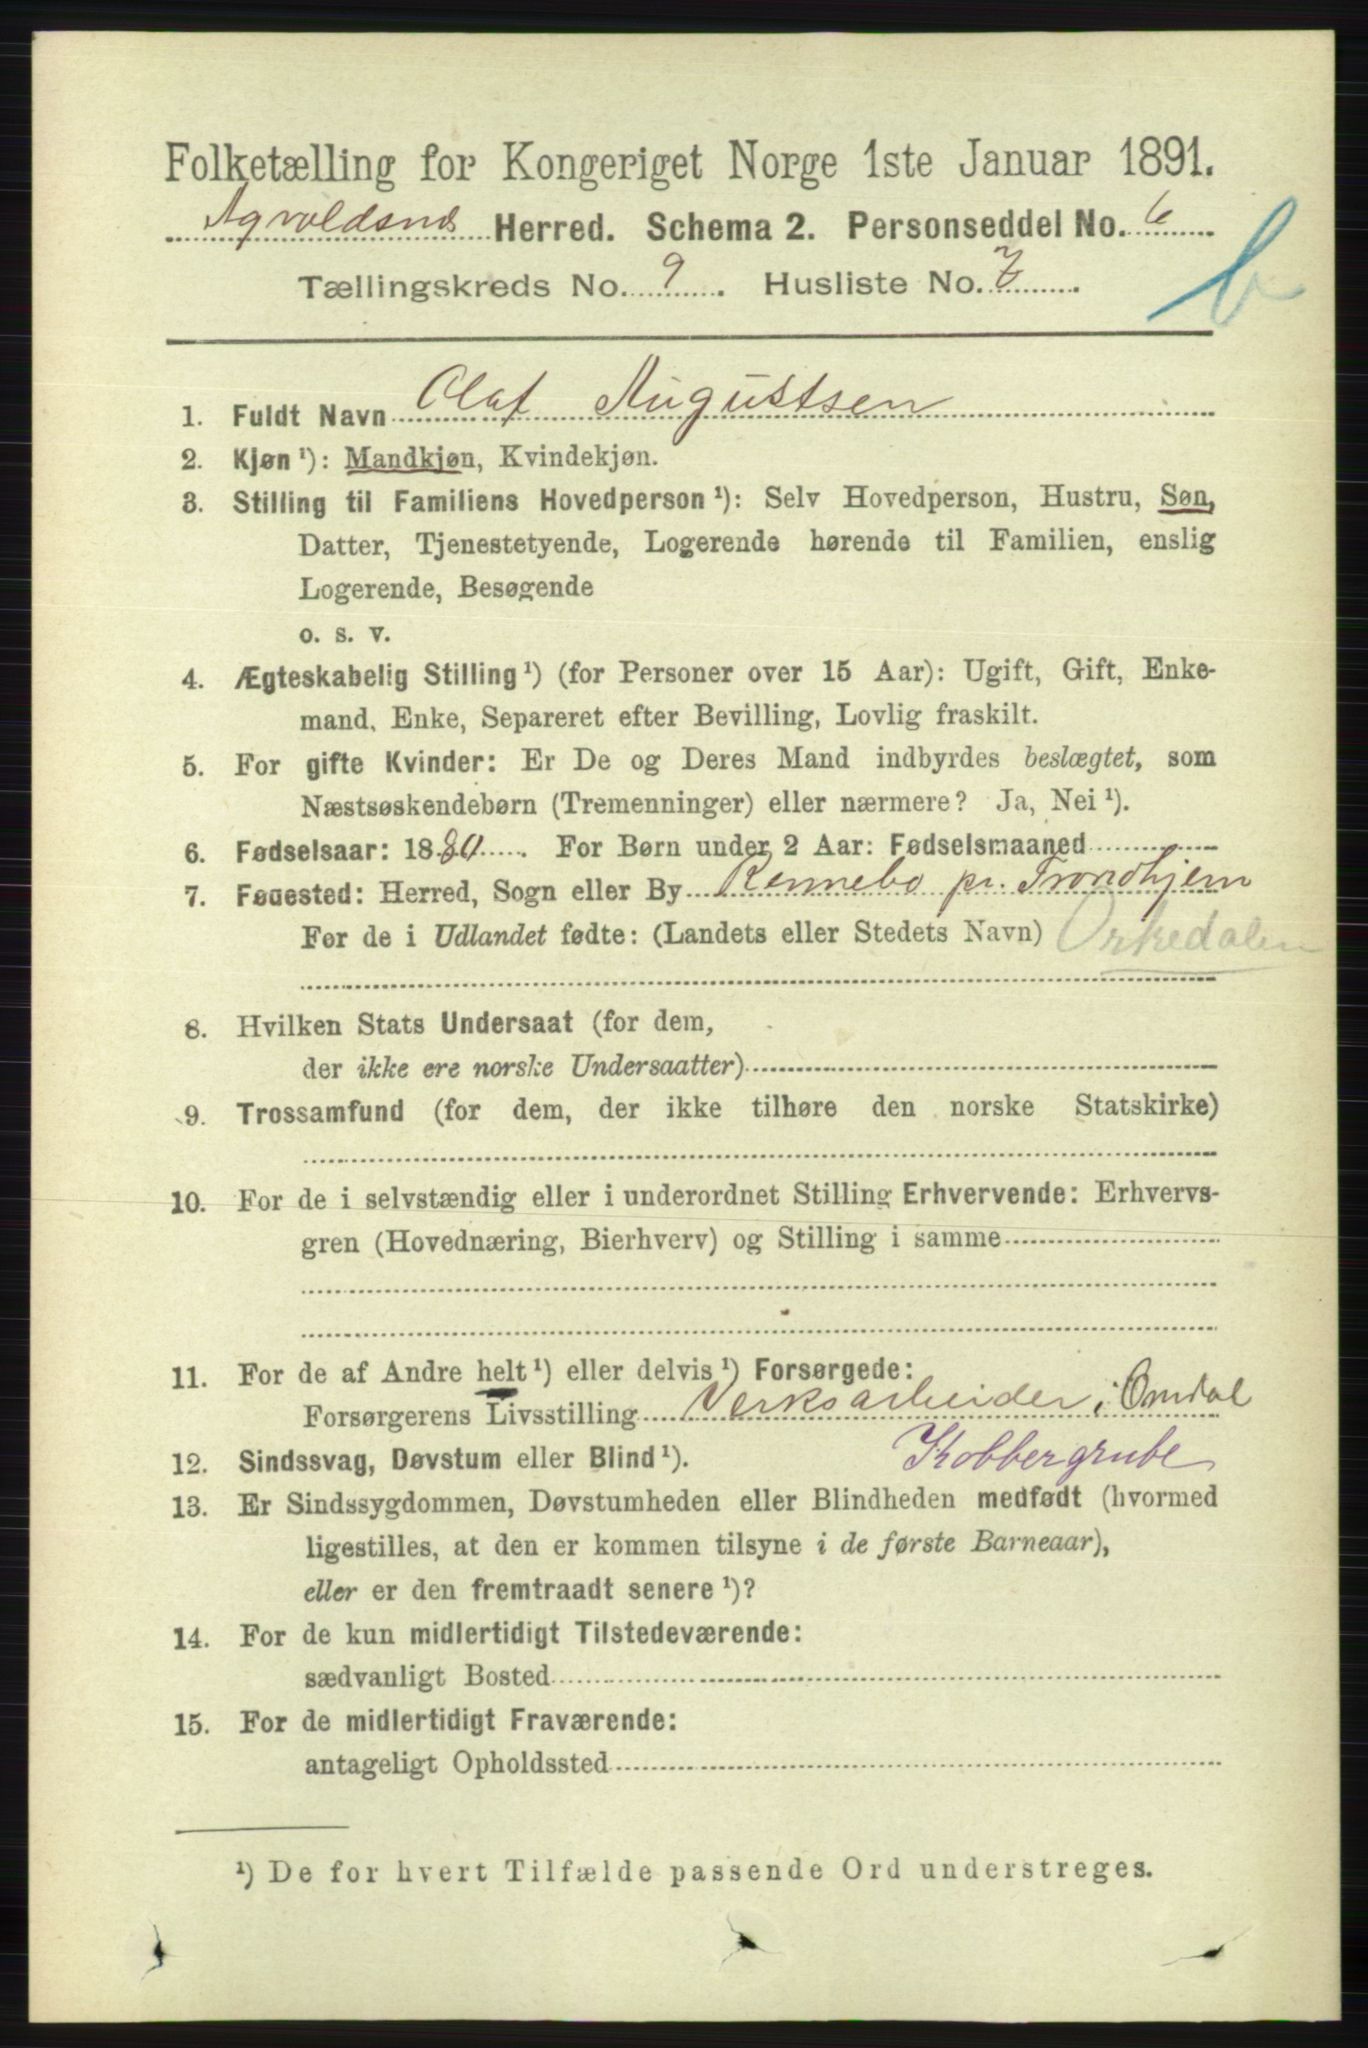 Folketælling for Kongeriget Norge 1ste Januar 1891.
Agvoldsnes Herred. Schema 2. Personseddel No. 6
b
Tællingskreds No. 9. Husliste No. 7.
1. Fuldt Navn Olaf Augustsen
2. Kjøn ¹): Mandkjøn, Kvindekjøn.
3. Stilling til Familiens Hovedperson ¹): Selv Hovedperson, Hustru, Søn,
Datter, Tjenestetyende, Logerende hørende til Familien, enslig
Logerende, Besøgende
o. s. v.
4. Ægteskabelig Stilling ¹) (for Personer over 15 Aar): Ugift, Gift, Enke-
mand, Enke, Separeret efter Bevilling, Lovlig fraskilt.
5. For gifte Kvinder: Er De og Deres Mand indbyrdes beslægtet, som
Næstsøskendebørn (Tremenninger) eller nærmere? Ja, Nei ¹).
6. Fødselsaar: 1880. For Børn under 2 Aar: Fødselsmaaned
7. Føuested: Herred, Sogn eller By Rennebo pr. Trondhjem
For de i Udlandet fødte: (Landets eller Stedets Navn) Orkedalen
8. Hvilken Stats Undersaat (for dem,
der ikke ere norske Undersaatter)
9. Trossamfund (for dem, der ikke tilhøre den norske Statskirke)
10. For de i selvstændig eller i underordnet Stilling Erhvervende: Erhvervs-
gren (Hovednæring, Bierhverv) og Stilling i samme
11. For de af Andre helt ¹) eller delvis ¹) Forsørgede:
Forsørgerens Livsstilling Verksarbeider i Omdal
Kobbergrube
12. Sindssvag, Døvstum eller Blind ¹).
13. Er Sindssygdommen, Døvstumheden eller Blindheden medfødt (hvormed
ligestilles, at den er kommen tilsyne i de første Barneaar),
eller er den fremtraadt senere ¹)?
14. For de kun midlertidigt Tilstedeværende:
sædvanligt Bosted
15. For de midlertidigt Fraværende:
antageligt Opholdssted
¹) De for hvert Tilfælde passende Ord understreges.